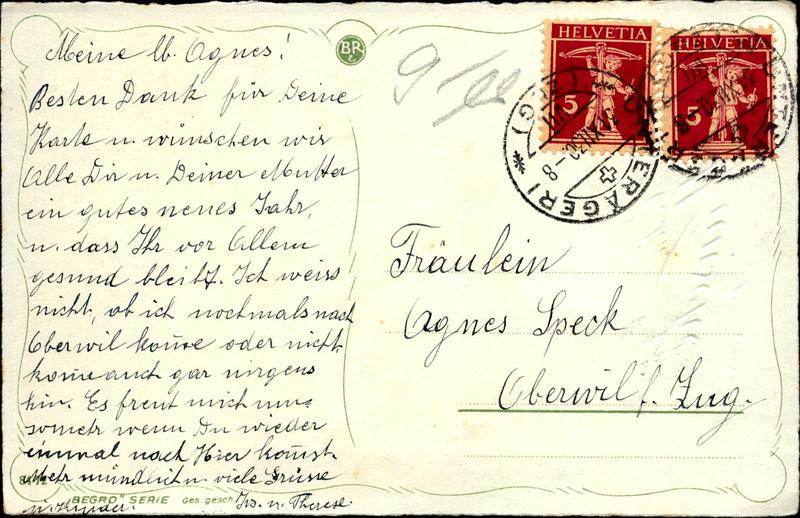 Meine lb. Agnes!
Besten Dank für Deine
Karte u. wünschen wir
Alle Dir u. Deiner Mutter
ein gutes neues Jahr,
u. dass Ihr vor Allem
gesund bleibt. Ich weiss
nicht, ob ich nochmals nach
Oberwil kom̄e oder nicht
kom̄e auch gar nirgens
hin. Es freut mich um
somehr wenn Du wieder
einmal nach Hier kom̄st.
Mehr mündlich u. viele Grüsse
u. Kinder. u. Therese.
"BEGRO" SERIE Ges. gesch.
BR
HELVETIA
5
HELVETIA
5
ERÄGERI
(ZUG)
Fräulein
Agnes Speck
Oberwil b. Zug.